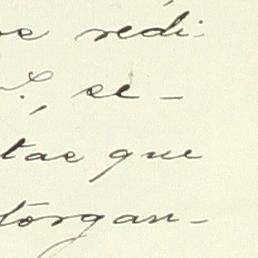 se redi-
S., se-
tas que
torgan-